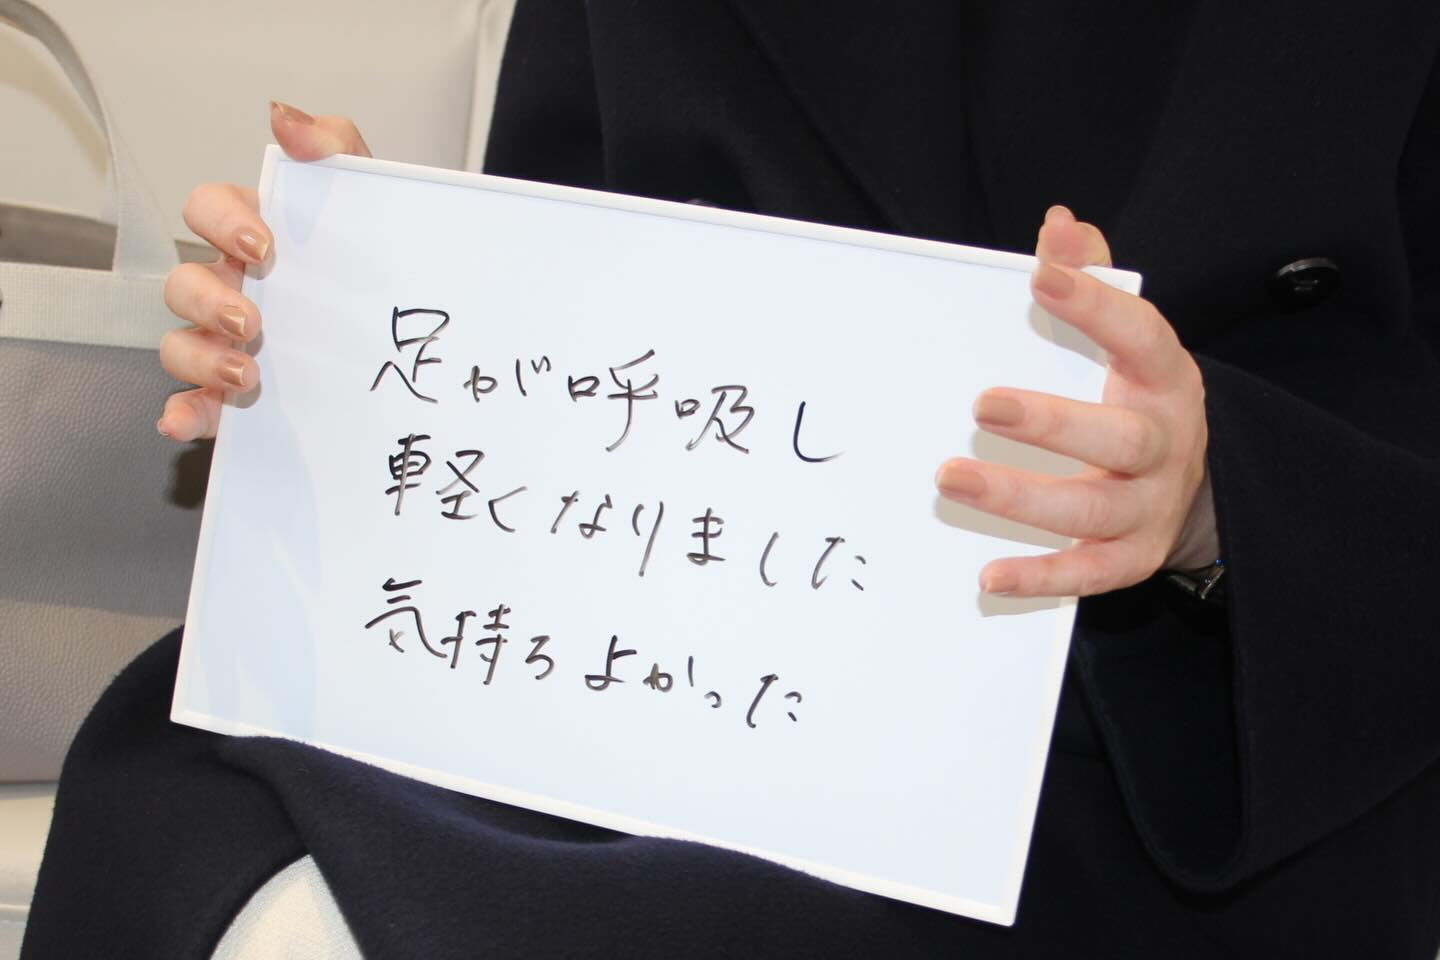 足が呼吸し
軽くなりました
気持ちよかった